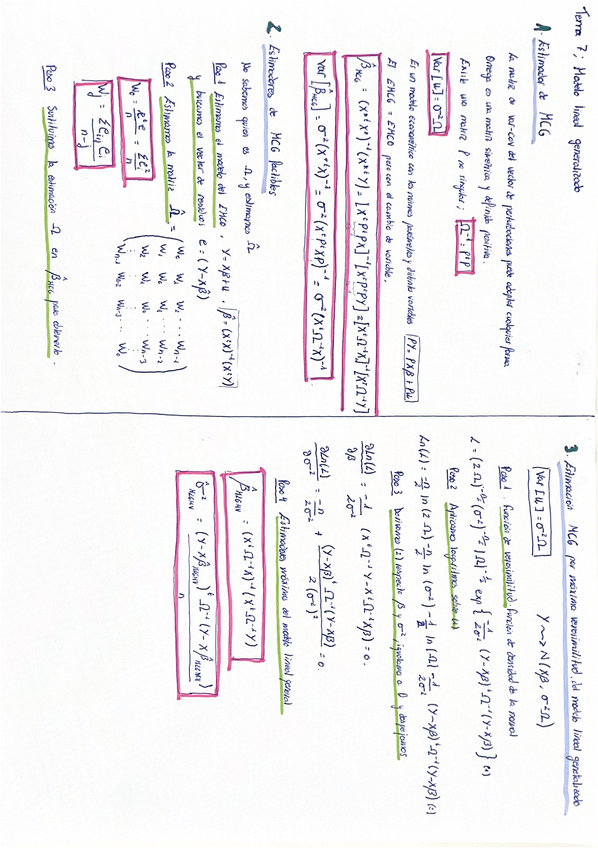 Tema 7; Modelo lineal generalizado
1. Estimador de MCG
La matriz de var-cov del vector de perturbaciones puede adoptar cualquier forma
Omega es una matriz simétrica y definida positiva.
Existe una matriz P no singular; Ω⁻¹ = PᵗP
Var[u] = σ²Ω
Es un modelo econométrico con los mismos parámetros y distintas variables PY = PXβ + Pu
El EMCG = EMCO pero con el cambio de variable,
β̂MCG = (X*ᵗX*)⁻¹(X*ᵗY) = [XᵗPᵗPX]⁻¹[XᵗPᵗPY] = [XᵗΩ⁻¹X]⁻¹[XᵗΩ⁻¹Y]
Var[β̂MCG] = σ²(X*ᵗX*)⁻¹ = σ²(XᵗPᵗXP)⁻¹ = σ²(XᵗΩ⁻¹X)⁻¹
2. Estimadores de MCG factibles
No sabemos quien es Ω, y estimamos Ω̂
Paso 1 Estimamos el modelo del EMCO, Y = Xβ + u. β̂ = (XᵗX)⁻¹(XᵗY)
y buscamos el vector de residuos e = (Y - Xβ̂)
Paso 2 Estimamos la matriz Ω̂ =
W₀ W₁ W₂ ... Wn-1
W₁ W₀ W₁ ... Wn-2
W₂ W₁ W₀ ... Wn-3
Wn-1 Wn-2 Wn-3 ... W₀
W₀ = eᵗe/n = Σei²/n
Wj = Σei-j ei / n-j
Paso 3 Sustituimos la estimación Ω en β̂MCG para obtenerlo.
3. Estimación MCG por máxima verosimilitud del modelo lineal generalizado
Var[u] = σ²Ω Y ~> N(Xβ, σ²Ω)
Paso 1. Función de verosimilitud. función de densidad de la normal
L = (2Ω)^-n/2 (σ²)^-n/2 |Ω|^-1/2 exp{-1/2σ² (Y-Xβ)ᵗΩ⁻¹(Y-Xβ)} (1)
Paso 2 Aplicamos logaritmo sobre (1)
Ln(L) = -n/2 ln(2Ω) -n/2 ln(σ²) -1/2 ln(Ω) -1/2σ² (Y-Xβ)ᵗΩ⁻¹(Y-Xβ) (2)
Paso 3 Derivamos (2) respecto β y σ², igualamos a 0 y despejamos
∂Ln(L)/∂β = -1/2σ² (XᵗΩ⁻¹Y - XᵗΩ⁻¹Xβ) = 0.
∂Ln(L)/∂σ² = -n/2σ² + (Y-Xβ)ᵗΩ⁻¹(Y-Xβ)/2(σ²)² = 0.
Paso 4 Estimadores máximo del modelo lineal general
β̂MLGMV = (XᵗΩ⁻¹X)⁻¹(XᵗΩ⁻¹Y)
σ̂²MLGMV = (Y-Xβ̂MLGMV)ᵗ Ω⁻¹(Y-Xβ̂MLGMV)/n